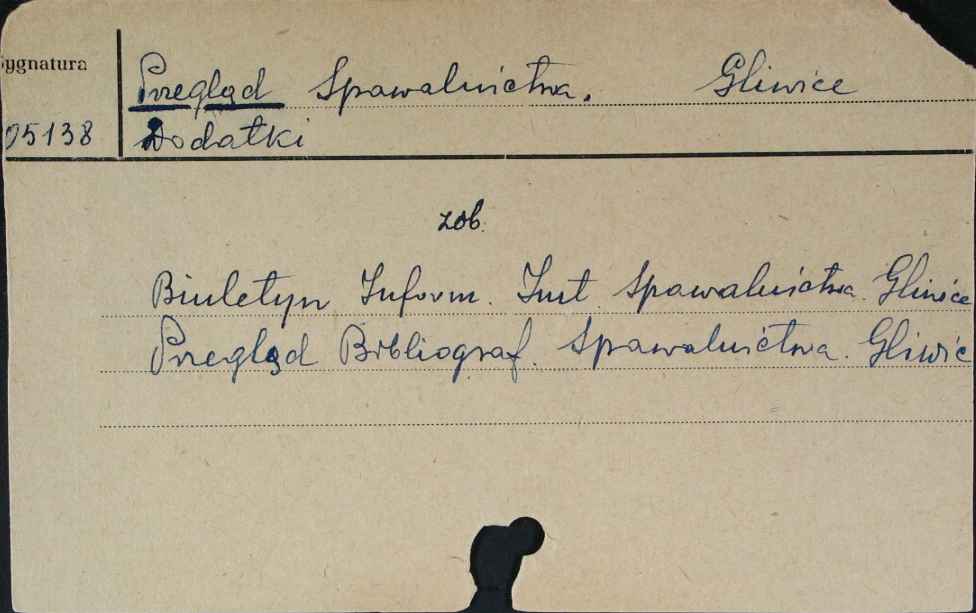 Sygnatura
Przegląd Spawalnictwa. Gliwice
05138 Dodatki
zob.
Biuletyn Inform. Inst. Spawalnictwa. Gliwice
Przegląd Bibliograf. Spawalnictwa. Gliwic